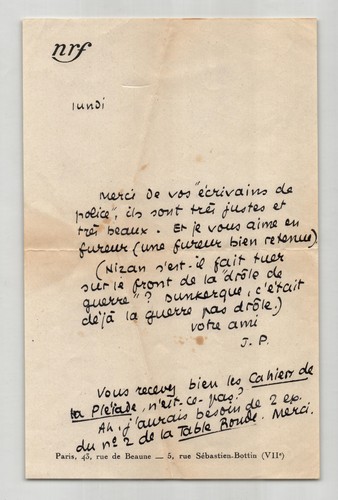 nrf
lundi
Merci de vos "écrivains de
police", ils sont très justes et
très beaux. Et je vous aime en
fureur (une fureur bien retenue)
(Nizan s'est-il fait tuer
sur le front de la "drôle de
guerre"? Dunkerque, c'était
déjà la guerre pas drôle.)
votre ami
J. P.
Vous recevez bien les Cahiers de
la Pléiade, n'est-ce-pas?
Ah, j'aurais besoin de 2 ex.
du n° 2 de la Table Ronde. Merci.
Paris, 43, rue de Beaune — 5, rue Sébastien-Bottin (VIIe)